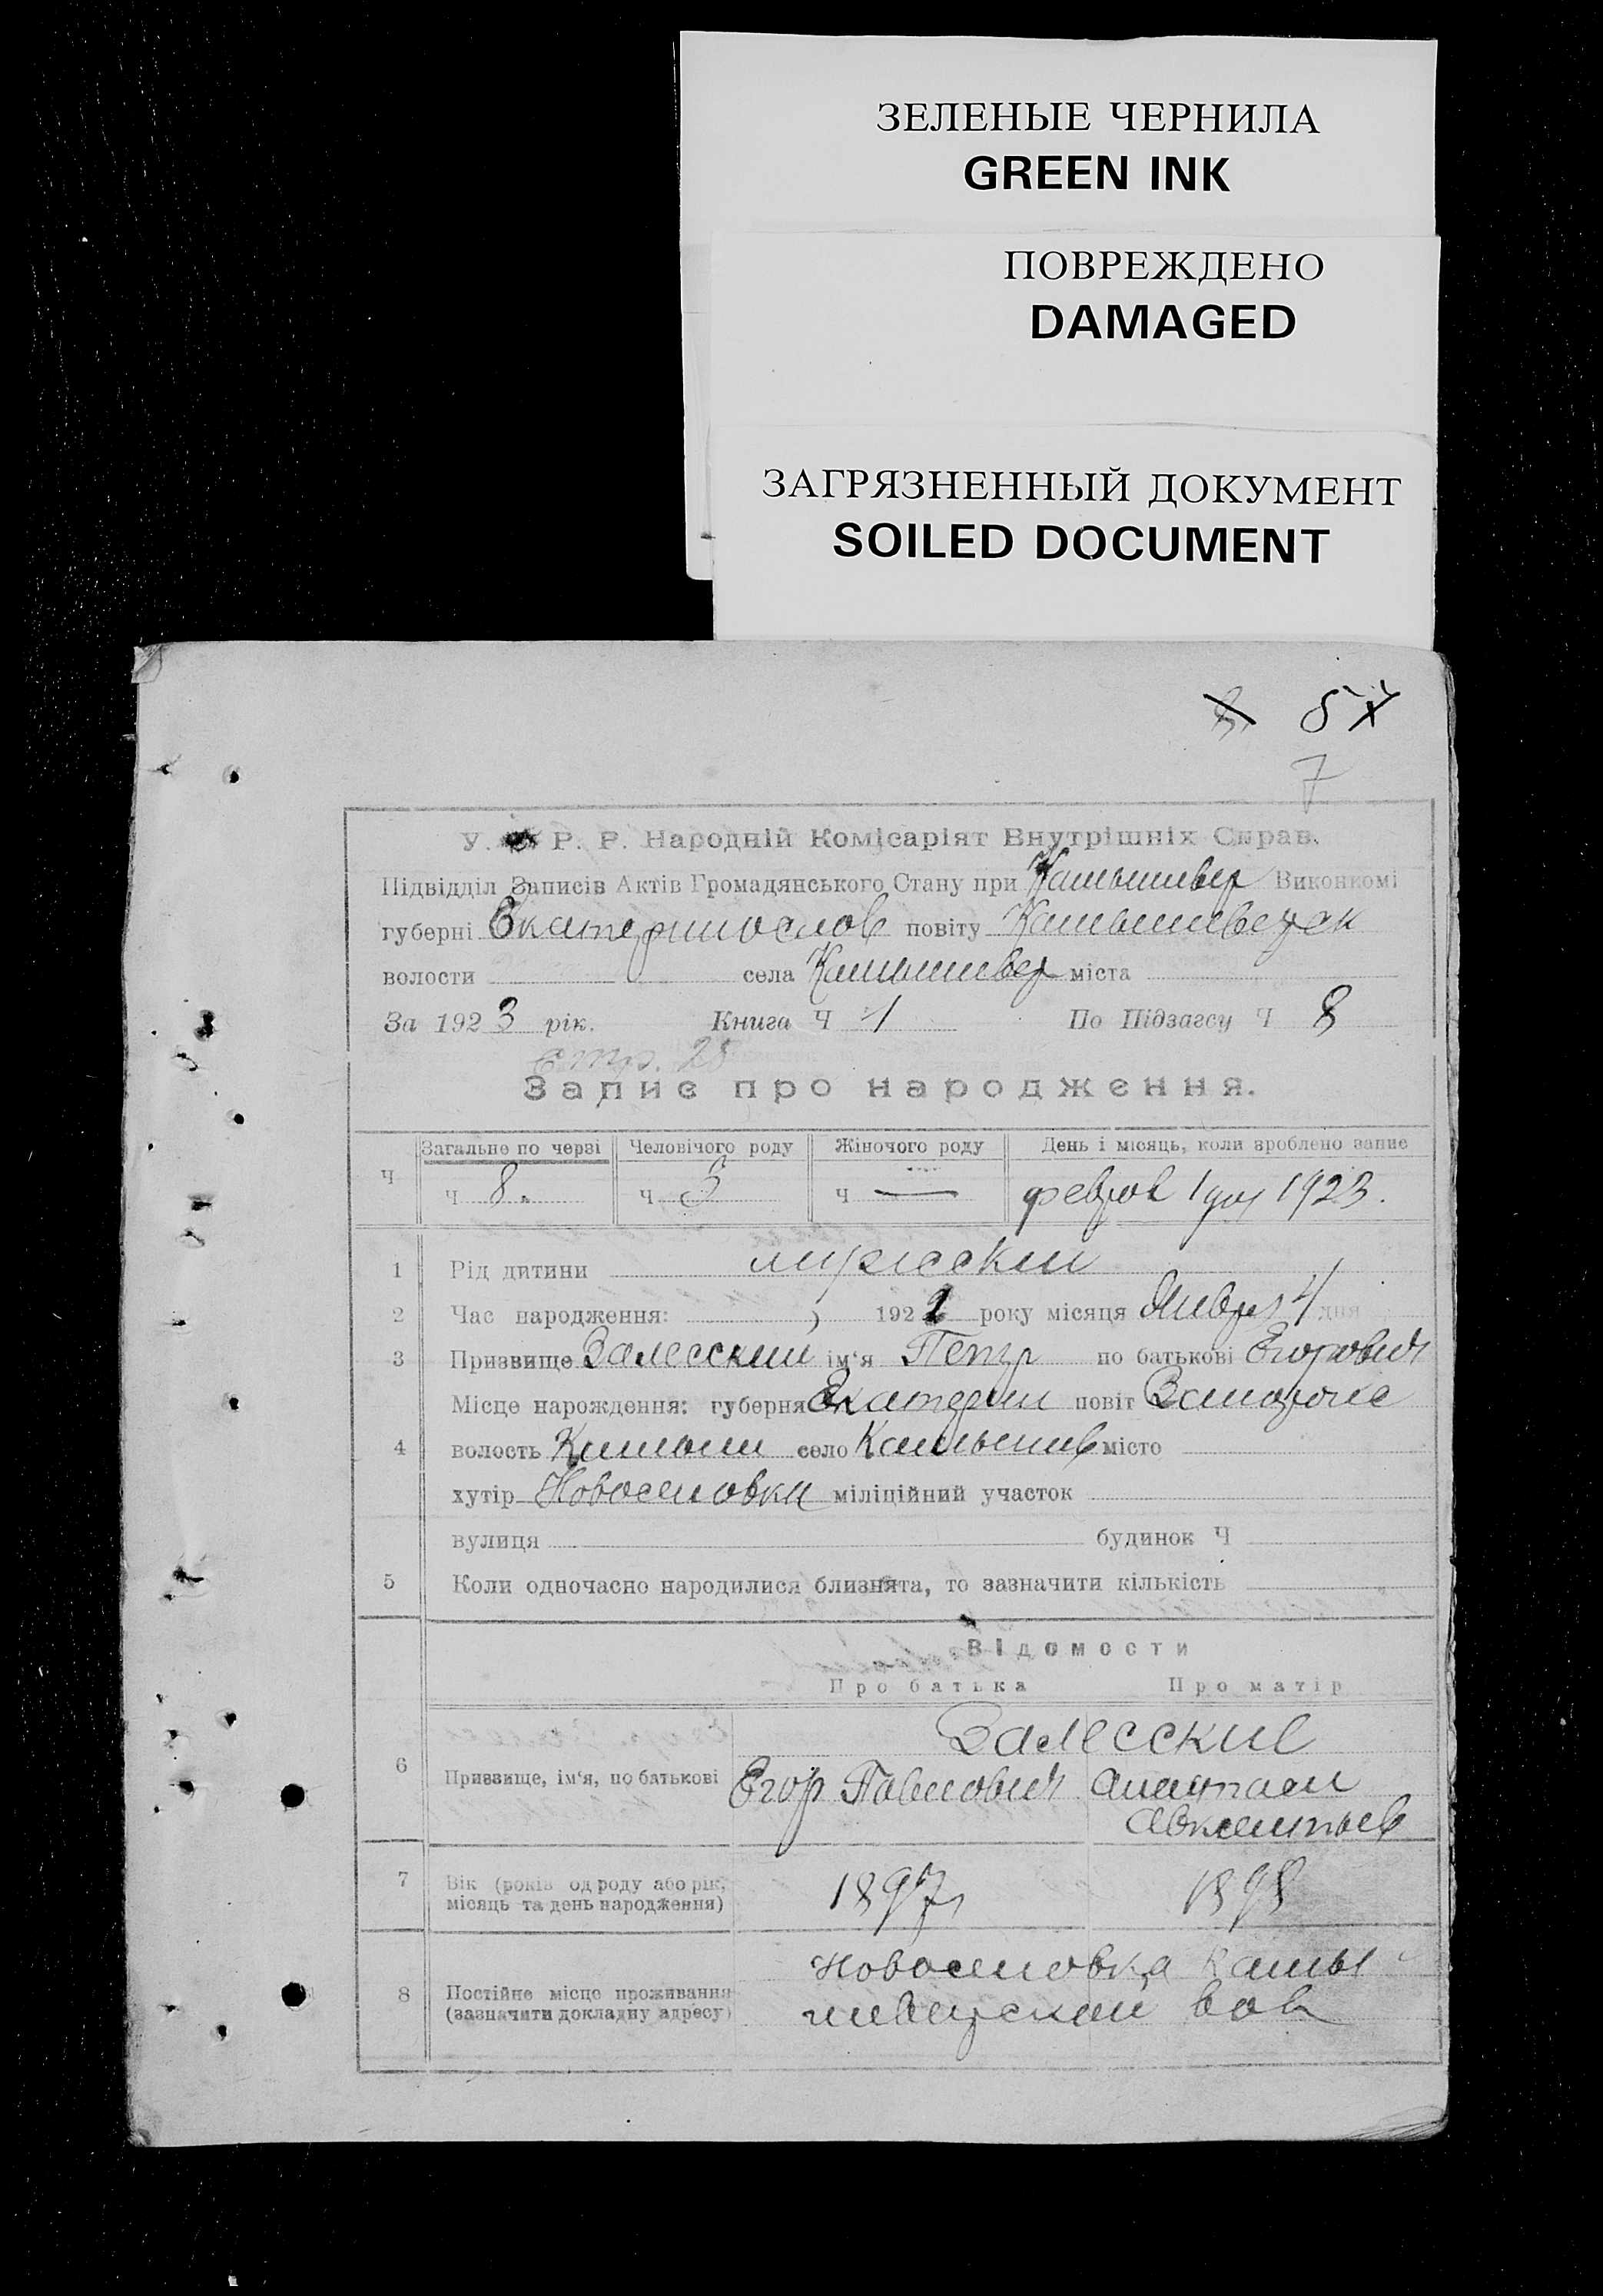 ЗЕЛЕНЫЕ ЧЕРНИЛА
GREEN INK
ПОВРЕЖДЕНО
DAMAGED
ЗАГРЯЗНЕННЫЙ ДОКУМЕНТ
SOILED DOCUMENT
5
7
У. Р. Р. Народній Комісаріят Внутрішніх Справ.
Підвідділ Записів Актів Громадянського Стану при Камышевах Виконкомі
губерні Екатеринослов повіту Камышевецак
волости села Камышевах міста
За 1923 рік. Книга Ч 1 По Підзагсу Ч 8
стр. 28
Запис про народження.
Загальне по черзі Человічого роду Жіночого роду День і місяць, коли зроблено запис
Ч Ч 8. Ч 3 Ч — феврал 1 дня 1923.
1 Рід дитини мужеский
2 Час народження: 192 року місяця Январ 4 дня
3 Призвище Залесский ім'я Петр по батькові Егорович
Місце нарождення: губерня Екатерин повіт Запорож
4 волость Камыш село Камышев місто
хутір міліційний участок
вулиця будинок Ч
5 Коли одночасно народилися близнята, то зазначити кількість
Відомости
Про батька Про матір
Залесские
6 Призвище, ім'я, по батькові Егор Павлович
Авксентьев
7 Вік (років од роду або рік, 1897 1898
місяць та день народження)
камы
8 Постійне місце проживання
(зазначити докладну адресу) шевацской вол